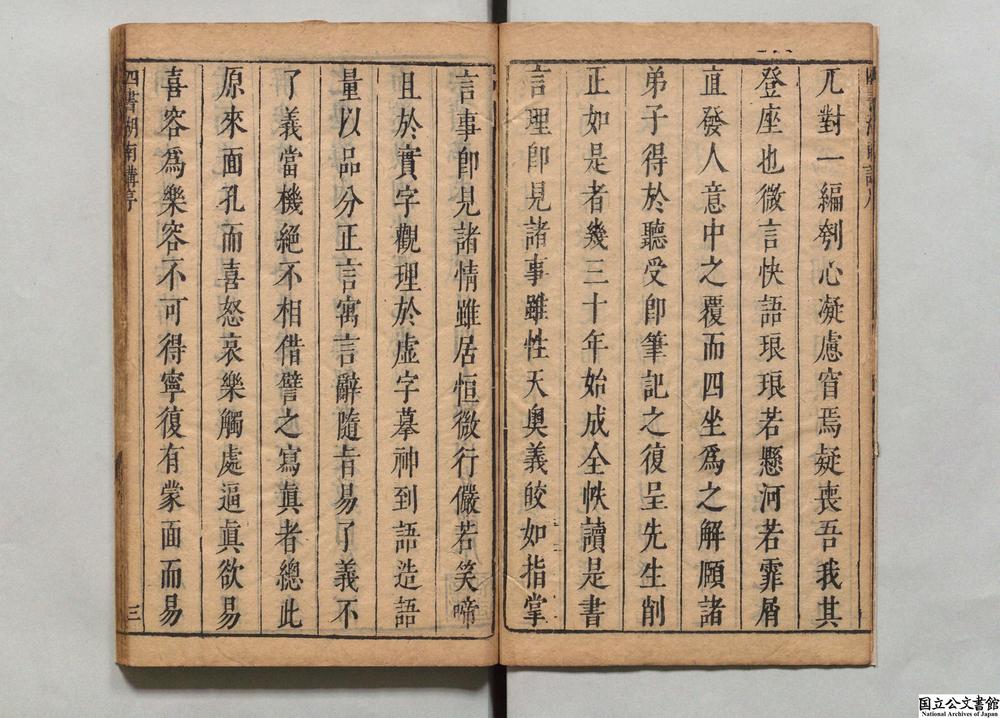 兀對一編刳心凝慮窅焉疑喪吾我其
登座也微言快語琅琅若懸河若霏屑
直發人意中之覆而四坐為之解頤諸
弟子得於聽受即筆記之復呈先生削
正如是者幾三十年始成全帙讀是書
言理即見諸事雖性天奧義皎如指掌
言事即見諸情雖居恒微行儼若笑啼
且於實字觀理於虛字摹神到語造語
量以品分正言寓言辭隨旨易了義不
了義當機絕不相借譬之寫真者總此
原來面孔而喜怒哀樂觸處逼真欲易
喜容為樂容不可得寧復有蒙面而易
四書湖南講序
三
国立公文書館
National Archives of Japan